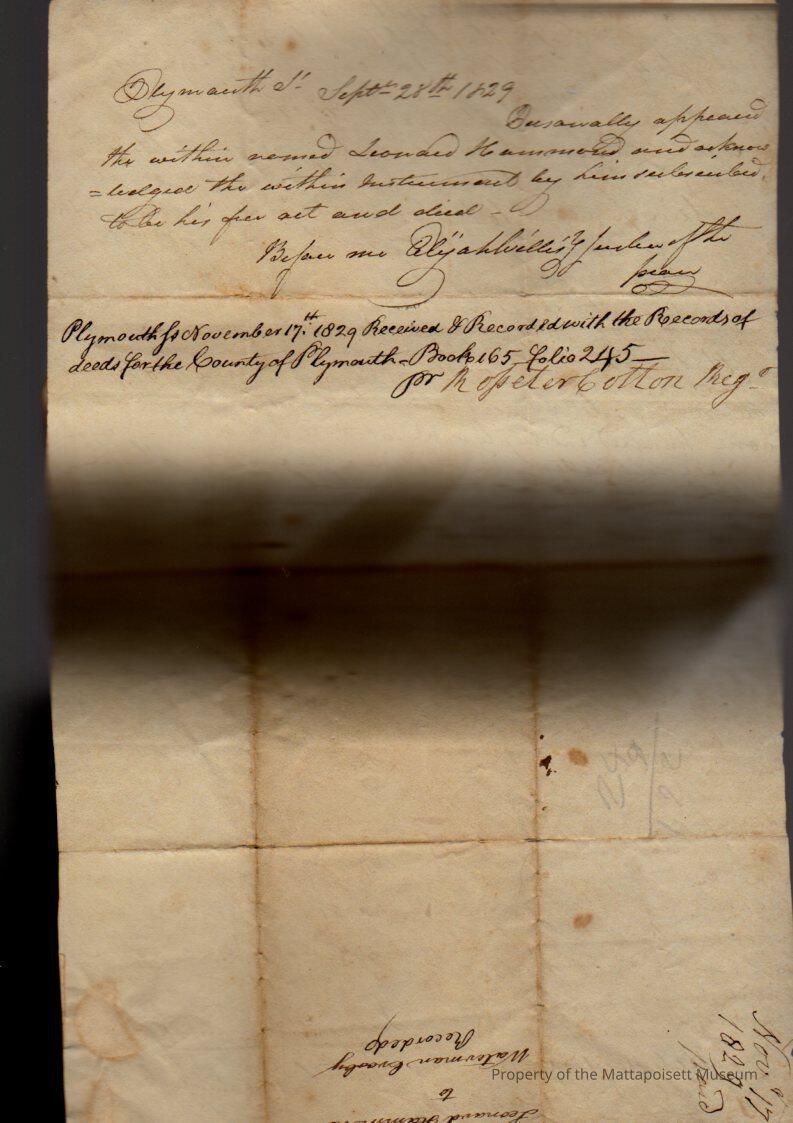 Plymouth Ss. Septr 28th 1829
Personally appeared
the within named Leonard Hammond and acknow
=ledged the within Instrument by him subscribed
to be his free act and deed –
Before me Elijah Willis Justice of the
peace
Plymouth Ss November 17th 1829 Received & Recorded with the Records of
deeds for the County of Plymouth – Book 165 folio 245 –
pr Rosseter Cotton Regr
Leonard Hammond
to
Waterman Crosby
Recorded
Nov. 17
1829
Paid
Property of the Mattapoisett Museum